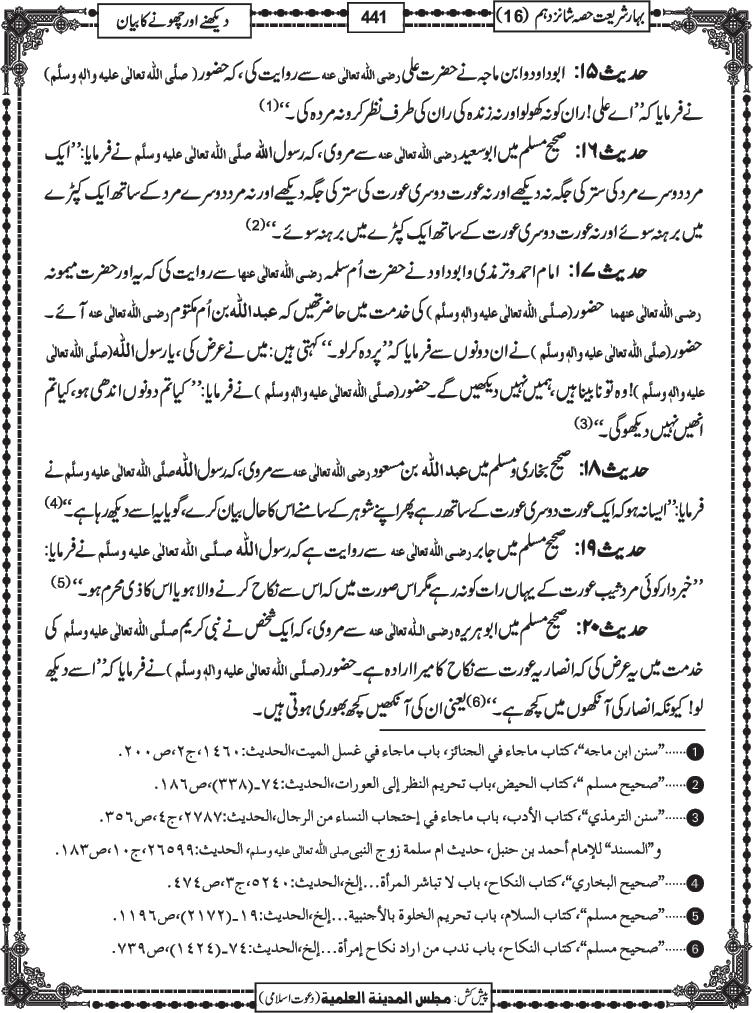 بہارِ شریعت حصہ شانزدہم (16)
441
دیکھنے اور چھونے کا بیان
حدیث ۱۵: ابو داود و ابن ماجہ نے حضرت علی رضی اللہ تعالٰی عنہ سے روایت کی، کہ حضور (صلَّی اللہ تعالٰی علیہ والہٖ وسلَّم)
نے فرمایا کہ ’’اے علی! ران کو نہ کھولو اور نہ زندہ کی ران کی طرف نظر کرو نہ مردہ کی۔‘‘(1)
حدیث ۱۶: صحیح مسلم میں ابوسعید رضی اللہ تعالٰی عنہ سے مروی، کہ رسول اللہ صلَّی اللہ تعالٰی علیہ والہٖ وسلَّم نے فرمایا: ’’ایک
مرد دوسرے مرد کی ستر کی جگہ نہ دیکھے اور نہ عورت دوسری عورت کی ستر کی جگہ دیکھے اور نہ مرد دوسرے مرد کے ساتھ ایک کپڑے
میں برہنہ سوئے اور نہ عورت دوسری عورت کے ساتھ ایک کپڑے میں برہنہ سوئے۔‘‘(2)
حدیث ۱۷: امام احمد و ترمذی و ابو داود نے حضرت اُم سلمہ رضی اللہ تعالٰی عنہا سے روایت کی کہ یہ اور حضرت میمونہ
رضی اللہ تعالٰی عنہما حضور (صلَّی اللہ تعالٰی علیہ والہٖ وسلَّم) کی خدمت میں حاضر تھیں کہ عبداللہ بن اُم مکتوم رضی اللہ تعالٰی عنہ آئے۔
حضور (صلَّی اللہ تعالٰی علیہ والہٖ وسلَّم) نے ان دونوں سے فرمایا کہ ’’پردہ کرلو۔‘‘ کہتی ہیں: میں نے عرض کی، یارسول اللہ (صلَّی اللہ تعالٰی
علیہ والہٖ وسلَّم)! وہ تو نابینا ہیں، ہمیں نہیں دیکھیں گے۔ حضور (صلَّی اللہ تعالٰی علیہ والہٖ وسلَّم) نے فرمایا: ’’کیا تم دونوں اندھی ہو، کیا تم
انھیں نہیں دیکھو گی۔‘‘(3)
حدیث ۱۸: صحیح بخاری و مسلم میں عبداللہ بن مسعود رضی اللہ تعالٰی عنہ سے مروی، کہ رسول اللہ صلَّی اللہ تعالٰی علیہ وسلَّم نے
فرمایا: ’’ایسا نہ ہو کہ ایک عورت دوسری عورت کے ساتھ رہے پھر اپنے شوہر کے سامنے اس کا حال بیان کرے، گویا یہ اسے دیکھ رہا ہے۔‘‘(4)
حدیث ۱۹: صحیح مسلم میں جابر رضی اللہ تعالٰی عنہ سے روایت ہے کہ رسول اللہ صلَّی اللہ تعالٰی علیہ وسلَّم نے فرمایا:
’’خبردار کوئی مرد ثیب عورت کے یہاں رات کو نہ رہے مگر اس صورت میں کہ اس سے نکاح کرنے والا ہو یا اس کا ذی محرم ہو۔‘‘(5)
حدیث ۲۰: صحیح مسلم میں ابوہریرہ رضی اللہ تعالٰی عنہ سے مروی، کہ ایک شخص نے نبی کریم صلَّی اللہ تعالٰی علیہ وسلَّم کی
خدمت میں یہ عرض کی کہ انصاریہ عورت سے نکاح کا میرا ارادہ ہے۔ حضور (صلَّی اللہ تعالٰی علیہ والہٖ وسلَّم) نے فرمایا کہ ’’اسے دیکھ
لو! کیونکہ انصار کی آنکھوں میں کچھ ہے۔‘‘(6) یعنی ان کی آنکھیں کچھ بھوری ہوتی ہیں۔
1 ......’’سنن ابن ماجه‘‘، كتاب ماجاء في الجنائز، باب ماجاء في غسل الميت، الحديث: ١٤٦٠، ج٢، ص٢٠٠.
2 ......’’صحيح مسلم‘‘، كتاب الحيض، باب تحريم النظر إلى العورات، الحديث: ٧٤ـ(٣٣٨)، ص١٨٦.
3 ......’’سنن الترمذي‘‘، كتاب الأدب، باب ماجاء في إحتجاب النساء من الرجال، الحديث: ٢٧٨٧، ج٤، ص٣٥٦.
و’’المسند‘‘ للإمام أحمد بن حنبل، حديث ام سلمة زوج النبى صلى الله تعالى عليه وسلم، الحديث: ٢٦٥٩٩، ج١٠، ص١٨٣.
4 ......’’صحيح البخاري‘‘، كتاب النكاح، باب لا تباشر المرأة...إلخ، الحديث: ٥٢٤٠، ج٣، ص٤٧٤.
5 ......’’صحيح مسلم‘‘، كتاب السلام، باب تحريم الخلوة بالأجنبية...إلخ، الحديث: ١٩ـ(٢١٧٢)، ص١١٩٦.
6 ......’’صحيح مسلم‘‘، كتاب النكاح، باب ندب من اراد نكاح إمرأة...إلخ، الحديث: ٧٤ـ(١٤٢٤)، ص٧٣٩.
پیش کش: مجلس المدینة العلمیة (دعوت اسلامی)